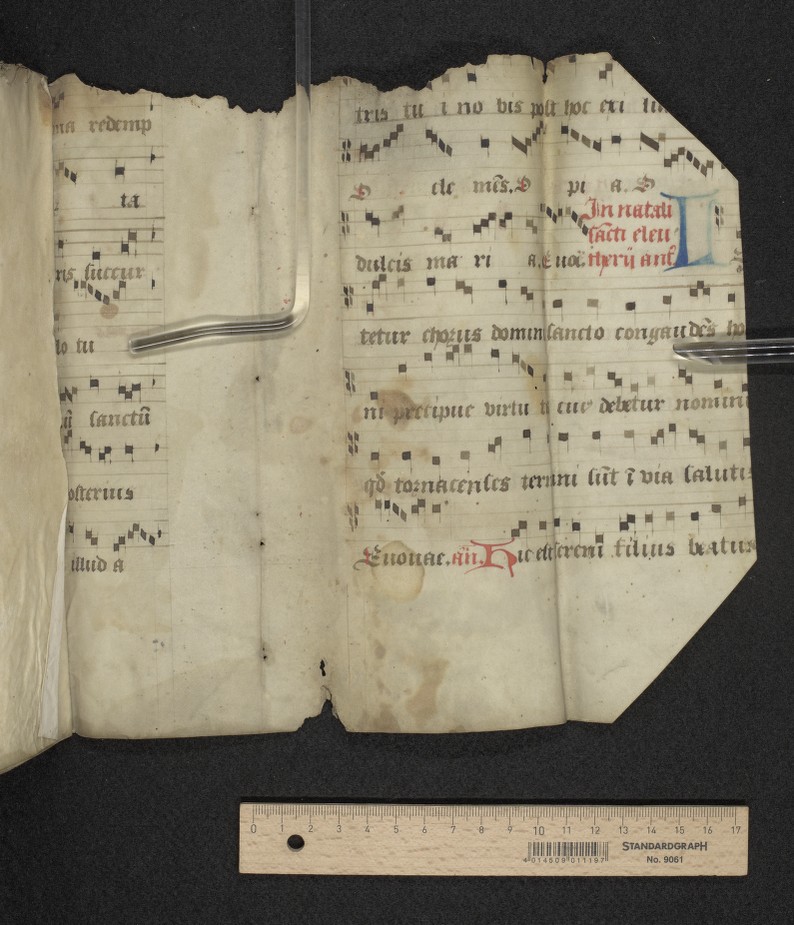 ma redemp
ta
ris succur
lo tu
sanctū
osterius
illud a
tris tu i no bis post hoc exi liu
O cle mēs. O pi a. O
dulcis ma ri a. Euoū.
In natali
sācti eleu
therij anſ
I
tetur chorus domin sancto congaudēs ho
ni precipue virtu ti cui debetur nomini
qd tornacenses terreni sūt ī via saluti
Euouae. añ. Hic eleferem filius beatus
0 1 2 3 4 5 6 7 8 9 10 11 12 13 14 15 16 17
4 014509 011197
STANDARDGRAPH
No. 9061